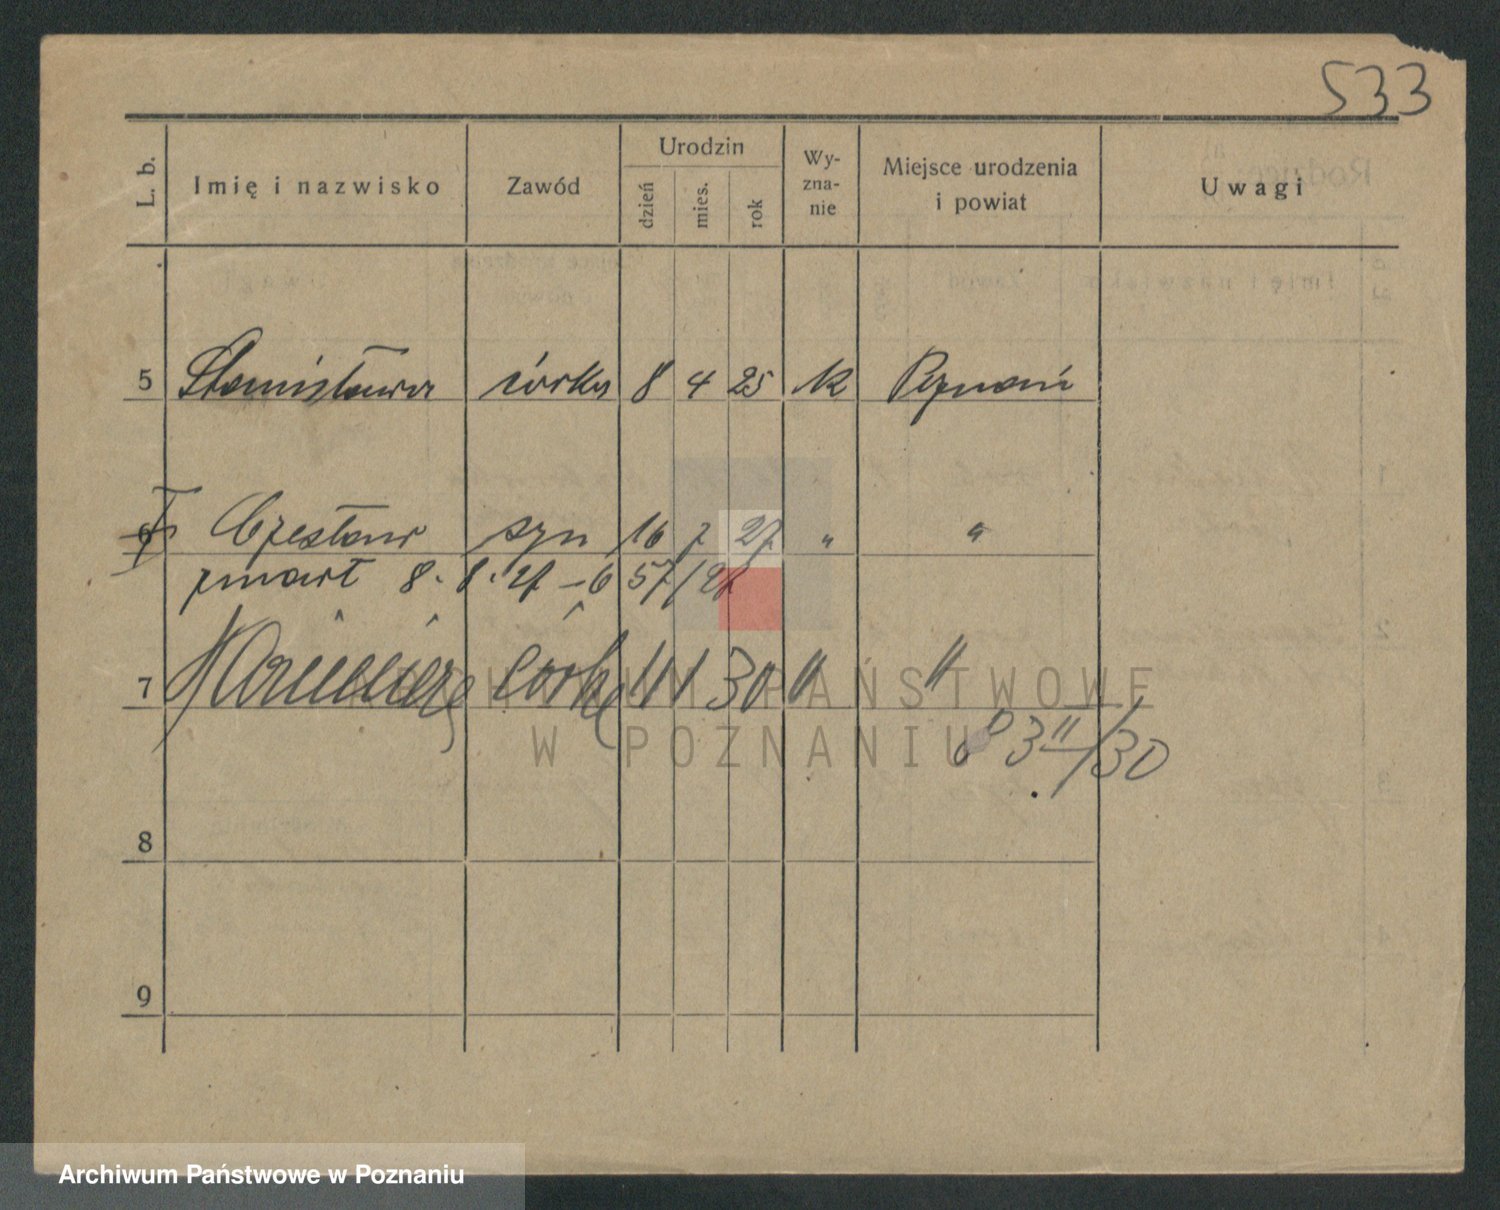 533
L. b. Imię i nazwisko Zawód Urodzin dzień mies. rok Wy-zna-nie Miejsce urodzenia i powiat Uwagi
5 Stanisława córka 8 4 25 k Poznań
6 Czesław syn 16 7 27 " "
zmarł 8. 8. 27 – 657/27
7 córka 11 1 30 " "
3 11/30
8
9
ARCHIWUM PAŃSTWOWE
W POZNANIU
Archiwum Państwowe w Poznaniu